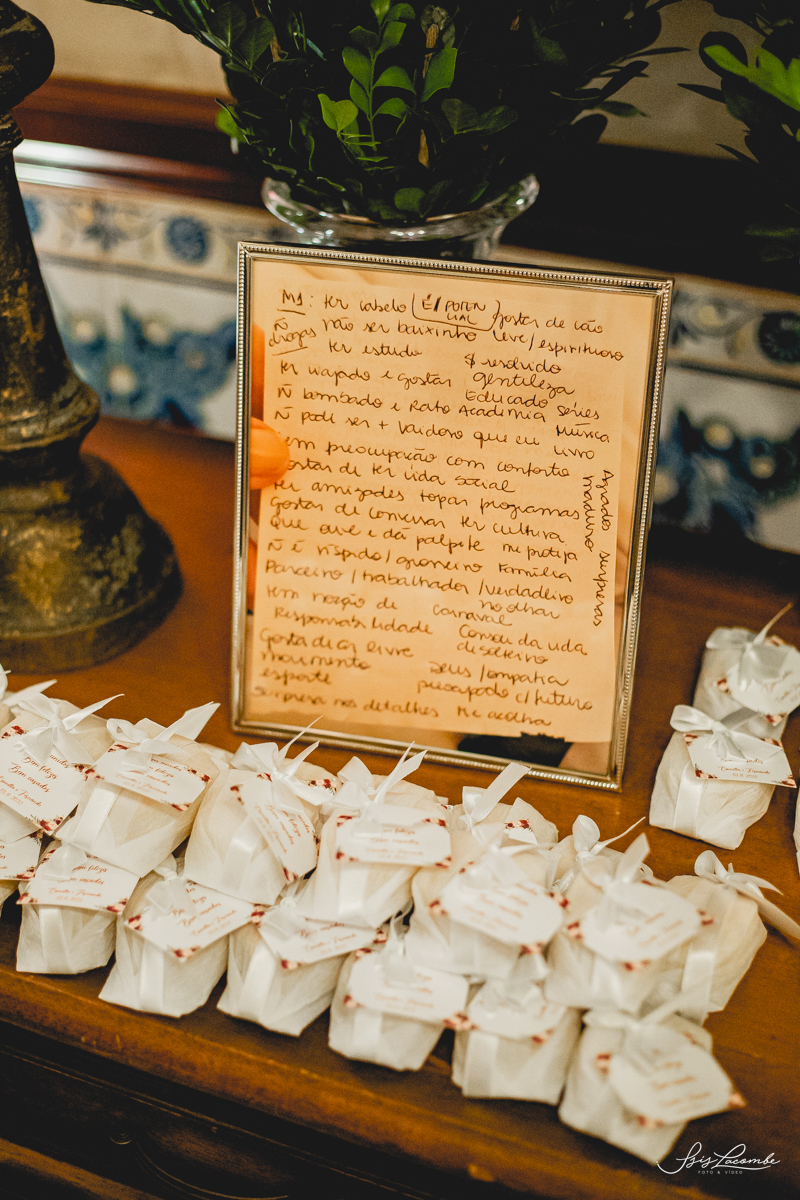 M1: ter cabelo (É/POTEN
CIAL) gostar de cão
Ñ não ser baixinho leve/espirituoso
drogas ter estudo $ resolvido
ter viajado e gostar gentileza
Educado séries
Ñ bombado e Rato Academia Música
Ñ pode ser + vaidoso que eu livro
sem preocupação com conforto
gostar de ter vida social
ter amizades topar programas
Gostar de conversar ter cultura
que ouve e dá palpite me proteja
Ñ é ríspido/grosseiro Família
Parceiro/trabalhador/verdadeiro
no olhar
tem noção de Carnaval
Responsabilidade Cansou da vida
de solteiro
Gosta de ar livre
movimento Deus/empatia
esporte preocupado c/ futuro
surpresa nos detalhes Me acolha
Agrado surpresas
maduro
Bem casados
Isis Lacombe
FOTO & VIDEO